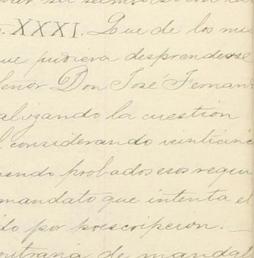 XXXI. Que de los mu
ue pudiera desprenderse
Señor Don José Fernan
alizando la cuestion
considerando veinticinc
iendo probados esos requi
mandato que intenta el
do por prescripcion. —
ontraria de mandat